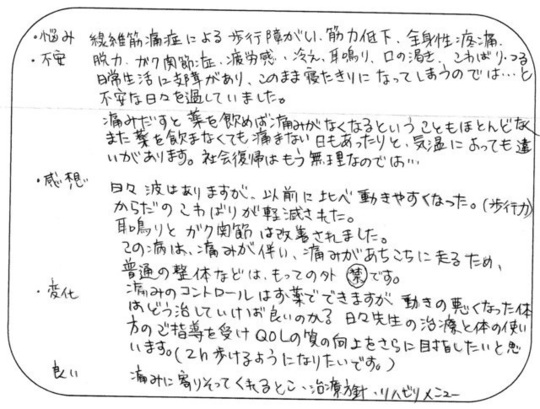 ・悩み 線維筋痛症による歩行障がい、筋力低下、全身性疼痛
・不安 脱力、ガク関節症、疲労感・冷え、耳鳴り、口の渇き、こわばり・つる
日常生活に支障があり、このまま寝たきりになってしまうのでは…と
不安な日々を過していました。
痛みだすと薬を飲めば痛みがなくなるということもほとんどなく
また薬を飲まなくても痛まない日もあったりと、気温によっても違
いがあります。社会復帰はもう無理なのでは…
・感想 日々波はありますが、以前に比べ動きやすくなった。(歩行力)
からだのこわばりが軽減された。
耳鳴りとガク関節は改善されました。
この病は、痛みが伴い、痛みがあちこちに走るため、
普通の整体などは、もっての外 禁です。
・変化 痛みのコントロールはお薬でできますが、動きの悪くなった体
はどう治していけば良いのかを日々先生の治療と体の使い
方のご指導を受けQOLの質の向上をさらに目指したいと思
います。(2h歩けるようになりたいです。)
良い 痛みに寄りそってくれるとこ・治療方針・リハビリメニュー